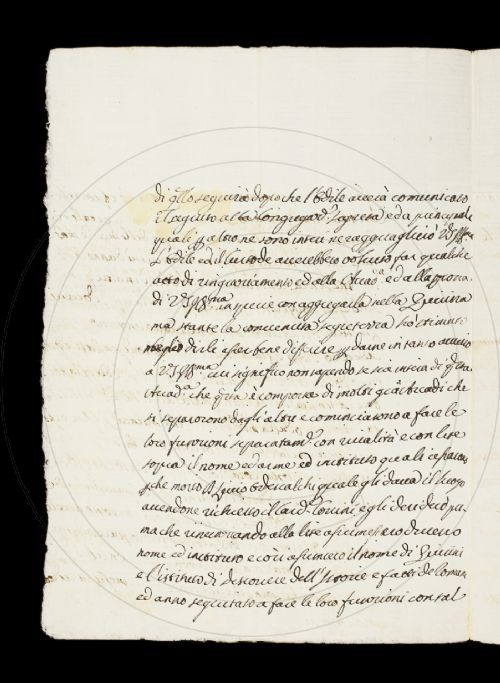 di q.llo seguirà dopo che l'Edile averà comunicato
il seguito alla Congreg.ne segreta ed a principale
quali altro ne sono intesi ne ragguaglierò V.S. Ill.ma
L'Edile ed il curiale averebbero voluto far qualche
atto di ringratiamento ed alla Accad.a ed alla persona
di V.S. Ill.ma in specie con aggregarla nella Quirina
ma stante la convenuta segretezza ho stimato
meglio dirle esser bene differire darne intanto avviso
a V.S. Ill.ma cui significo non sapendo se sia intesa di q.sta
Accad.a che q.sta è composta di molti già Arcadi che
si separorono dagli altri e cominciarono a fare le
loro funzioni separatam.te con rivalità e con lite
sopra il nome ed arme ed instituto quali
che morto D. Livio Odescalchi quale gli dava il luogo
avendone richiesto il Card. Corsini egli
ma che rinunziando alla lite assumessero di nuovo
nome ed instituto e così assunsero il nome di Quirini
e l'istituto di descrivere dell'Istorie e fatti de Romani
ed anno seguitato a fare le loro funzioni con tal